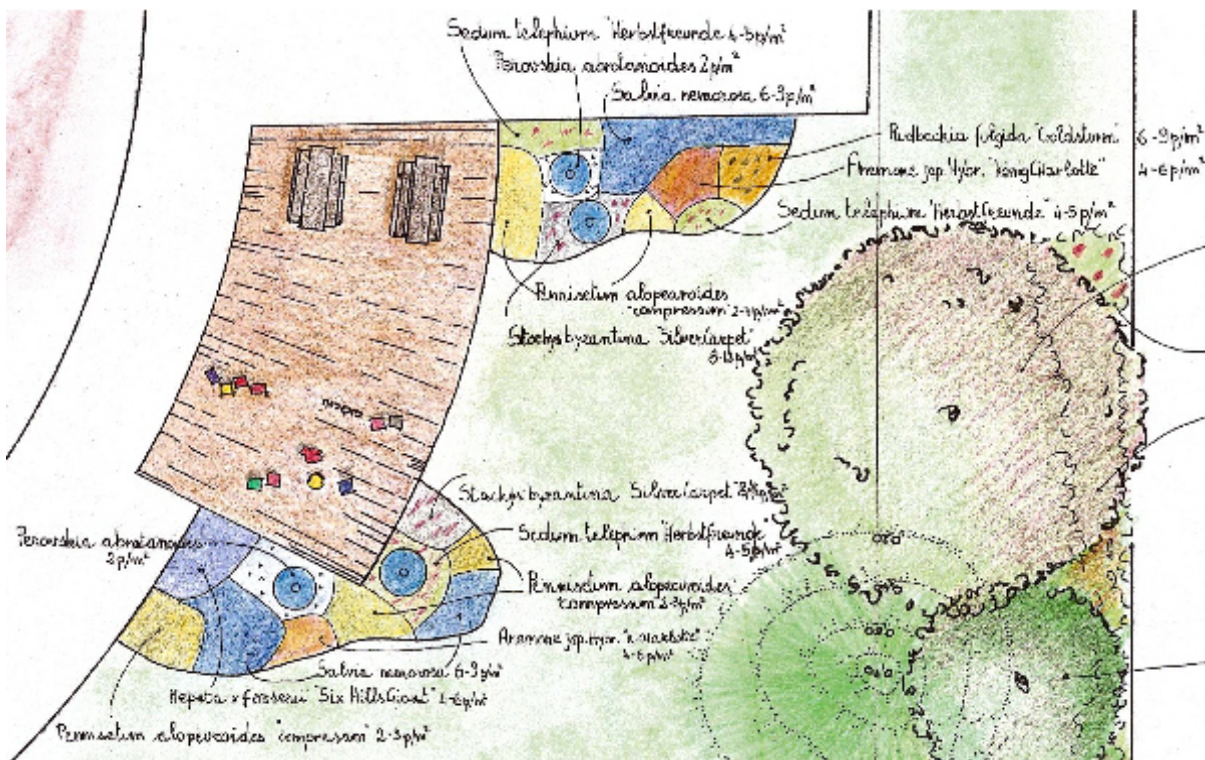 Sedum telephium "Herbstfreunde" 4-5p/m²
Perovskia abrotanoides 2p/m²
Salvia nemorosa 6-9p/m²
Rudbeckia fulgida "Goldsturm" 6-9p/m²
Anemone jap. Hybr. 4-6p/m²
Sedum telephium "Herbstfreunde" 4-5p/m²
Pennisetum alopecuroides
"compressum" 2-3p/m²
Stachys byzantina "Silver Carpet"
Stachys byzantina "Silver Carpet"
Sedum telephium "Herbstfreunde"
4-5p/m²
Perovskia abrotanoides
2p/m²
Pennisetum alopecuroides
compressum 2-3p/m²
Anemone jap. Hybr.
4-6p/m²
Salvia nemorosa 6-9p/m²
Nepeta x fassenii "Six Hills Giant"
Pennisetum alopecuroides "compressum" 2-3p/m²